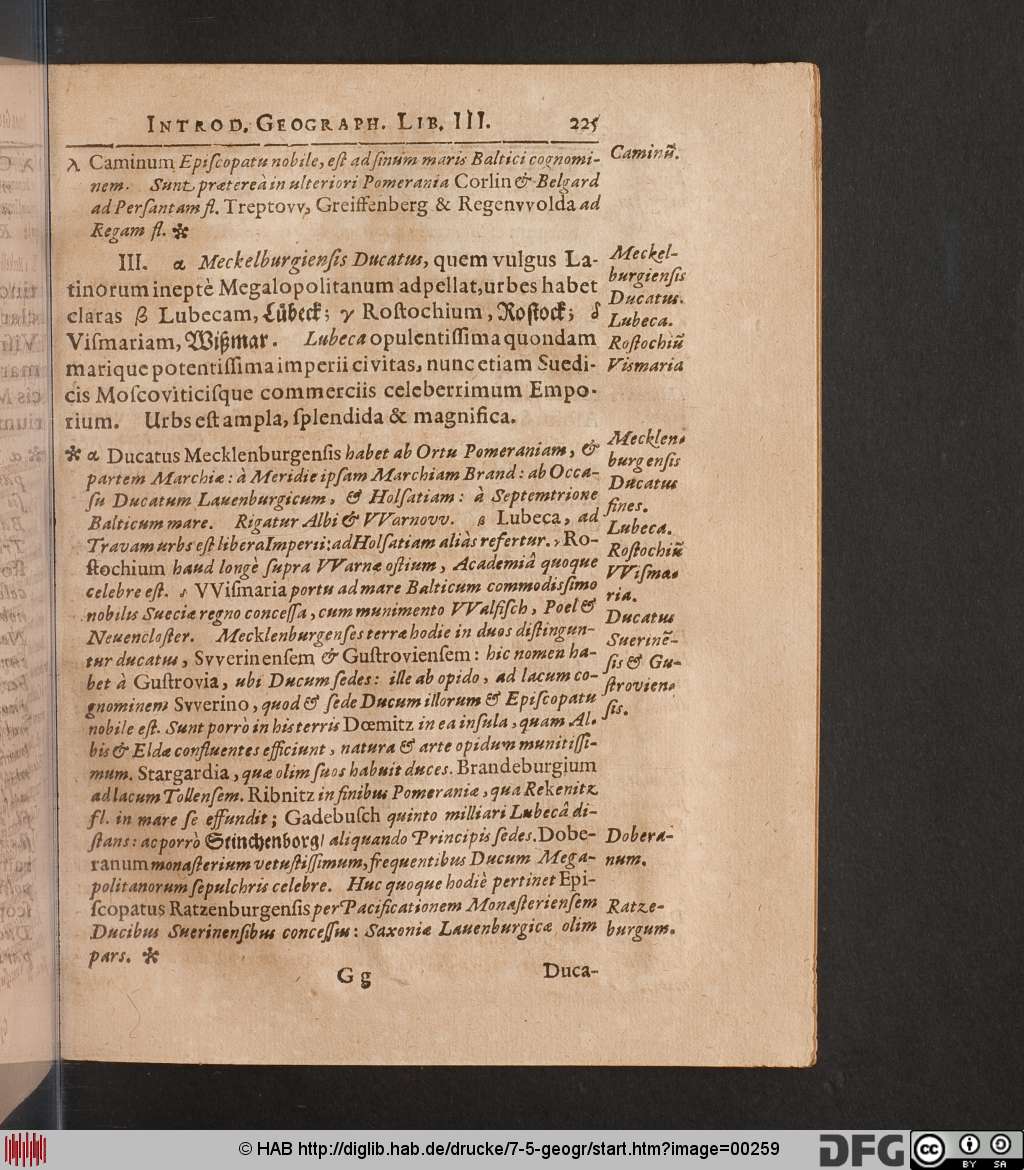 INTROD. GEOGRAPH. LIB. III. 225
λ Caminum Epiſcopatu nobile, eſt ad ſinum maris Baltici cognomi-
nem. Sunt prætereà in ulteriori Pomerania Corlin & Belgard
ad Perſantam fl. Treptovv, Greiffenberg & Regenvvolda ad
Regam fl. ✻
Caminũ.
III. α Meckelburgienſis Ducatus, quem vulgus La-
tinorum ineptè Megalopolitanum adpellat, urbes habet
claras β Lubecam, Lübeck; γ Roſtochium, Roſtock; δ
Viſmariam, Wißmar. Lubeca opulentiſſima quondam
marique potentiſſima imperii civitas, nunc etiam Suedi-
cis Moſcoviticiſque commerciis celeberrimum Empo-
rium. Urbs eſt ampla, ſplendida & magnifica.
Meckel-
burgienſis
Ducatus.
Lubeca.
Roſtochiũ
Vismaria
✻ α Ducatus Mecklenburgenſis habet ab Ortu Pomeraniam, &
partem Marchiæ: à Meridie ipſam Marchiam Brand: ab Occa-
ſu Ducatum Lauenburgicum, & Holſatiam: à Septemtrione
Balticum mare. Rigatur Albi & VVarnovv. β Lubeca, ad
Travam urbs eſt libera Imperii: ad Holſatiam aliàs refertur. γ Ro-
ſtochium haud longè ſupra VVarnæ oſtium, Academiâ quoque
celebre eſt. δ VViſmaria portu ad mare Balticum commodiſſimo
nobilis Sueciæ regno conceſſa, cum munimento VValfiſch, Poel &
Neuencloſter. Mecklenburgenſes terræ hodie in duos diſtingun-
tur ducatus, Svverinenſem & Guſtrovienſem: hic nomen ha-
bet à Guſtrovia, ubi Ducum ſedes: ille ab opido, ad lacum co-
gnominem Svverino, quod & ſede Ducum illorum & Epiſcopatu
nobile eſt. Sunt porrò in his terris Dœmitz in ea inſula, quam Al-
bis & Eldæ confluentes efficiunt, natura & arte opidum munitiſſi-
mum. Stargardia, quæ olim ſuos habuit duces. Brandeburgium
ad lacum Tollenſem. Ribnitz in finibus Pomeraniæ, qua Rekenitz
fl. in mare ſe effundit; Gadebuſch quinto milliari Lubecâ di-
ſtans: ac porrò Stinchenborg/ aliquando Principis ſedes. Dobe-
ranum monaſterium vetuſtiſſimum, frequentibus Ducum Mega-
politanorum ſepulchris celebre. Huc quoque hodiè pertinet Epi-
ſcopatus Ratzenburgenſis per Pacificationem Monaſterienſem
Ducibus Suerinenſibus conceſſus: Saxoniæ Lauenburgicæ olim
pars. ✻
Mecklen-
burgenſis
Ducatus
fines.
Lubeca.
Roſtochiũ
VViſma-
ria.
Ducatus
Suerinẽ-
ſis & Gu-
ſtrovien-
ſis.
Dobera-
num.
Ratze-
burgum.
G g Duca-
© HAB http://diglib.hab.de/drucke/7-5-geogr/start.htm?image=00259
DFG cc BY SA